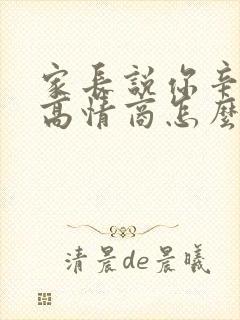 家长説你辛
高情商怎麼
清晨de晨曦